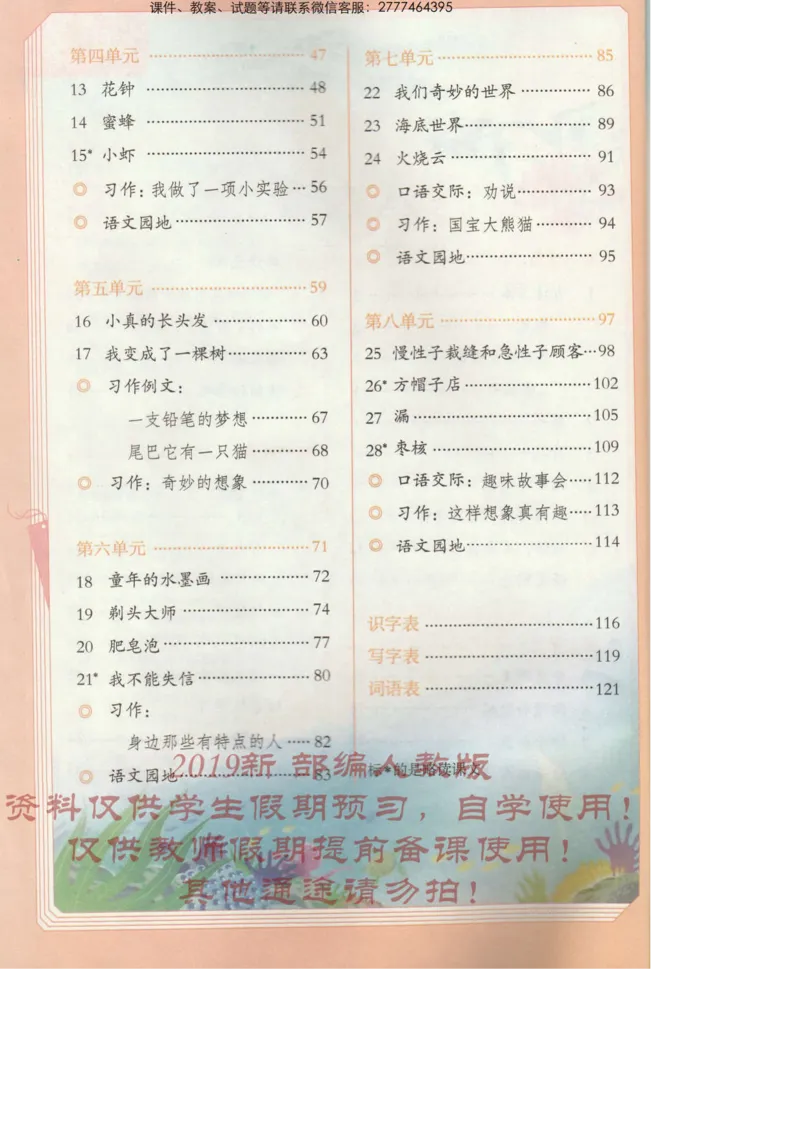 课件、教案、试题等请联系微信客服：2777464395
第四单元 …………………… 47
13 花钟 …………………… 48
14 蜜蜂 …………………… 51
15* 小虾 …………………… 54
◎ 习作：我做了一项小实验… 56
◎ 语文园地…………………… 57
第五单元 …………………… 59
16 小真的长头发 …………… 60
17 我变成了一棵树………… 63
◎ 习作例文：
一支铅笔的梦想………… 67
尾巴它有一只猫………… 68
◎ 习作：奇妙的想象………… 70
第六单元 …………………… 71
18 童年的水墨画 …………… 72
19 剃头大师 ………………… 74
20 肥皂泡…………………… 77
21* 我不能失信……………… 80
◎ 习作：
身边那些有特点的人 …… 82
◎ 语文园地…………………… 83
第七单元…………………… 85
22 我们奇妙的世界 ………… 86
23 海底世界………………… 89
24 火烧云…………………… 91
◎ 口语交际：劝说………… 93
◎ 习作：国宝大熊猫………… 94
◎ 语文园地…………………… 95
第八单元 …………………… 97
25 慢性子裁缝和急性子顾客…98
26* 方帽子店 ………………… 102
27 漏 ……………………… 105
28* 枣核 …………………… 109
◎ 口语交际：趣味故事会…… 112
◎ 习作：这样想象真有趣…… 113
◎ 语文园地…………………… 114
识字表 …………………… 116
写字表 …………………… 119
词语表 …………………… 121
标*的是略读课文
2019新 部编人教版
资料仅供学生假期预习，自学使用！
仅供教师假期提前备课使用！
其他通途请勿拍！